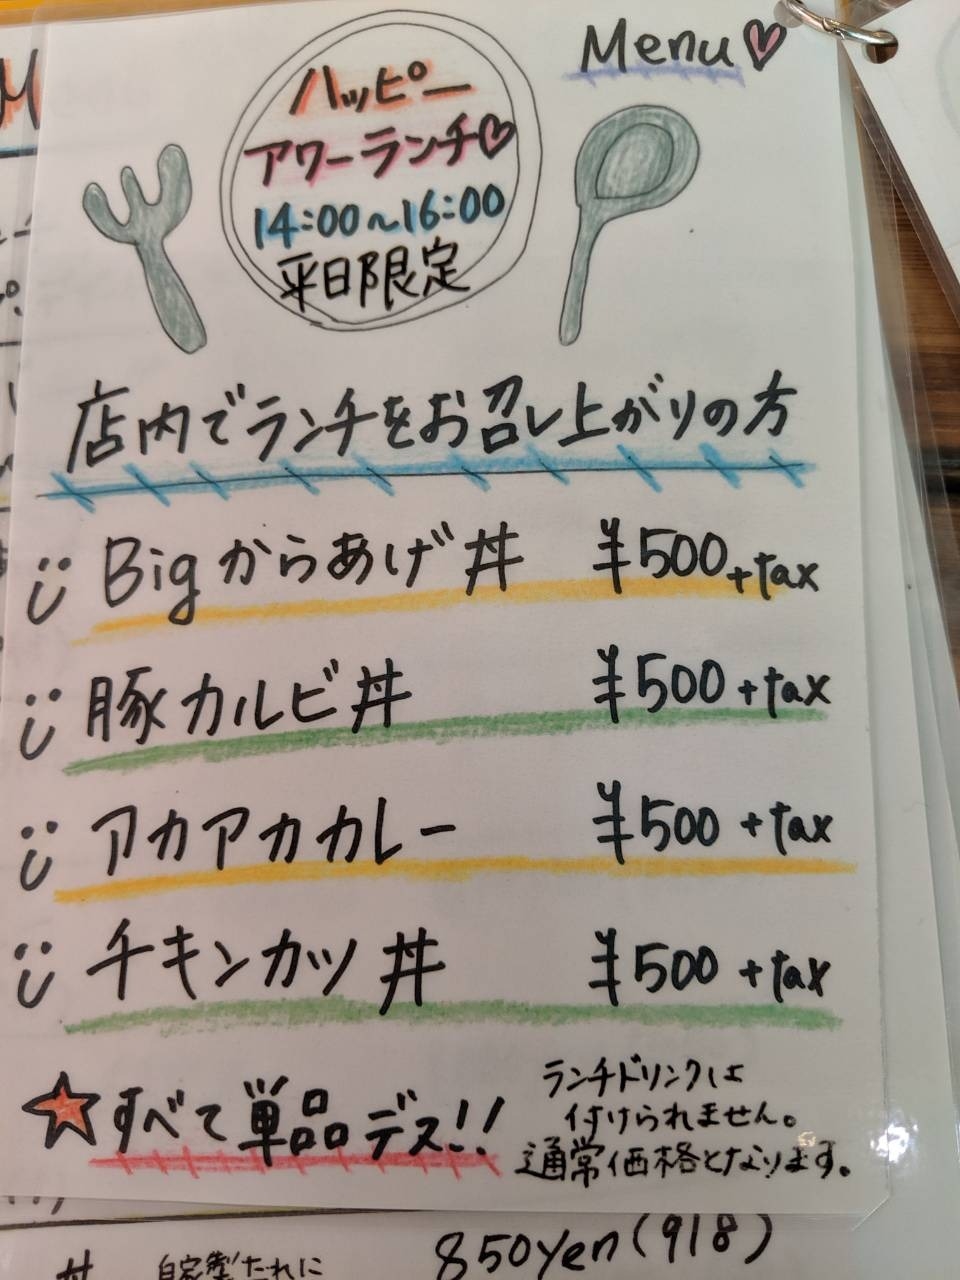 Menu♡
ハッピー
アワーランチ♡
14:00~16:00
平日限定
店内でランチをお召し上がりの方
Bigからあげ丼 ¥500+tax
豚カルビ丼 ¥500+tax
アカアカカレー ¥500+tax
チキンカツ丼 ¥500+tax
すべて単品デス!!
ランチドリンクは
付けられません。
通常価格となります。
丼 自家製たれに 850yen(918)